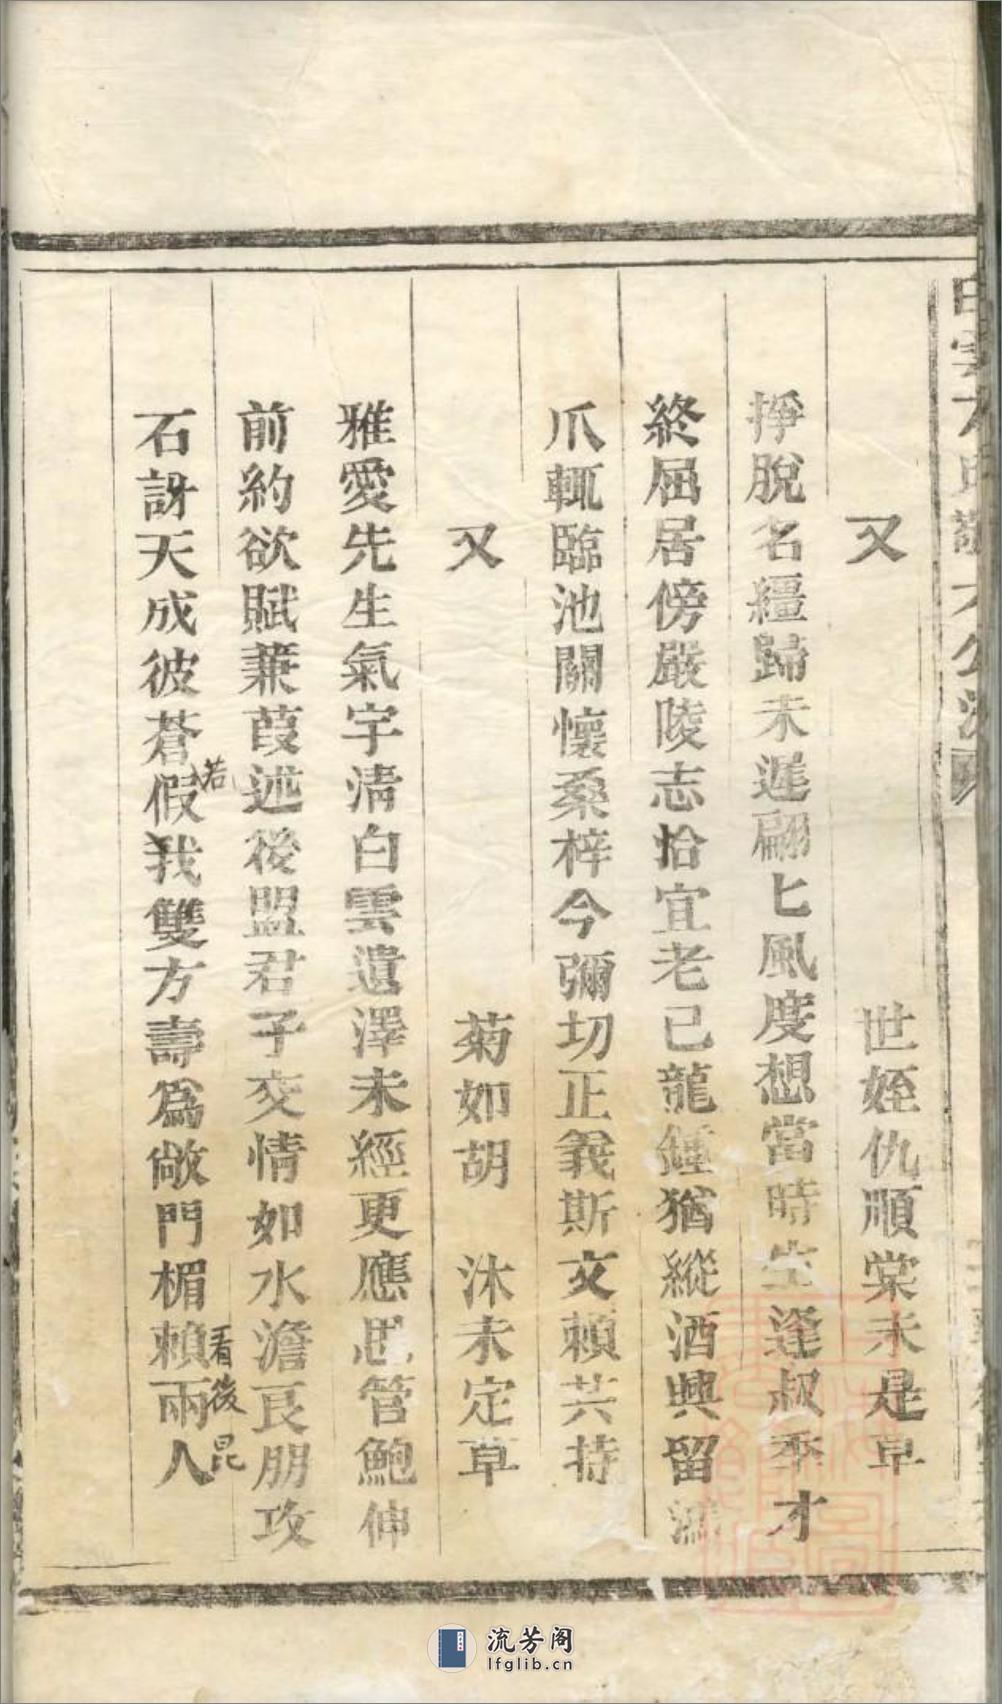 又
世姪仇順棠未是草
掙脫名繮歸未遲翩匕風度想當時生逢叔季才
終屈居傍嚴陵志恰宜老已龍鍾猶縱酒興留鴻
爪輒臨池關懷桑梓今彌切正義斯文賴共持
又
菊如胡　沐未定草
雅愛先生氣宇清白雲遺澤未經更應思管鮑伸
前約欲賦蒹葭述後盟君子交情如水澹良朋攻
石訝天成彼蒼假我雙方壽爲敞門楣賴兩人
若
看後昆
流芳阁
lfglib.cn